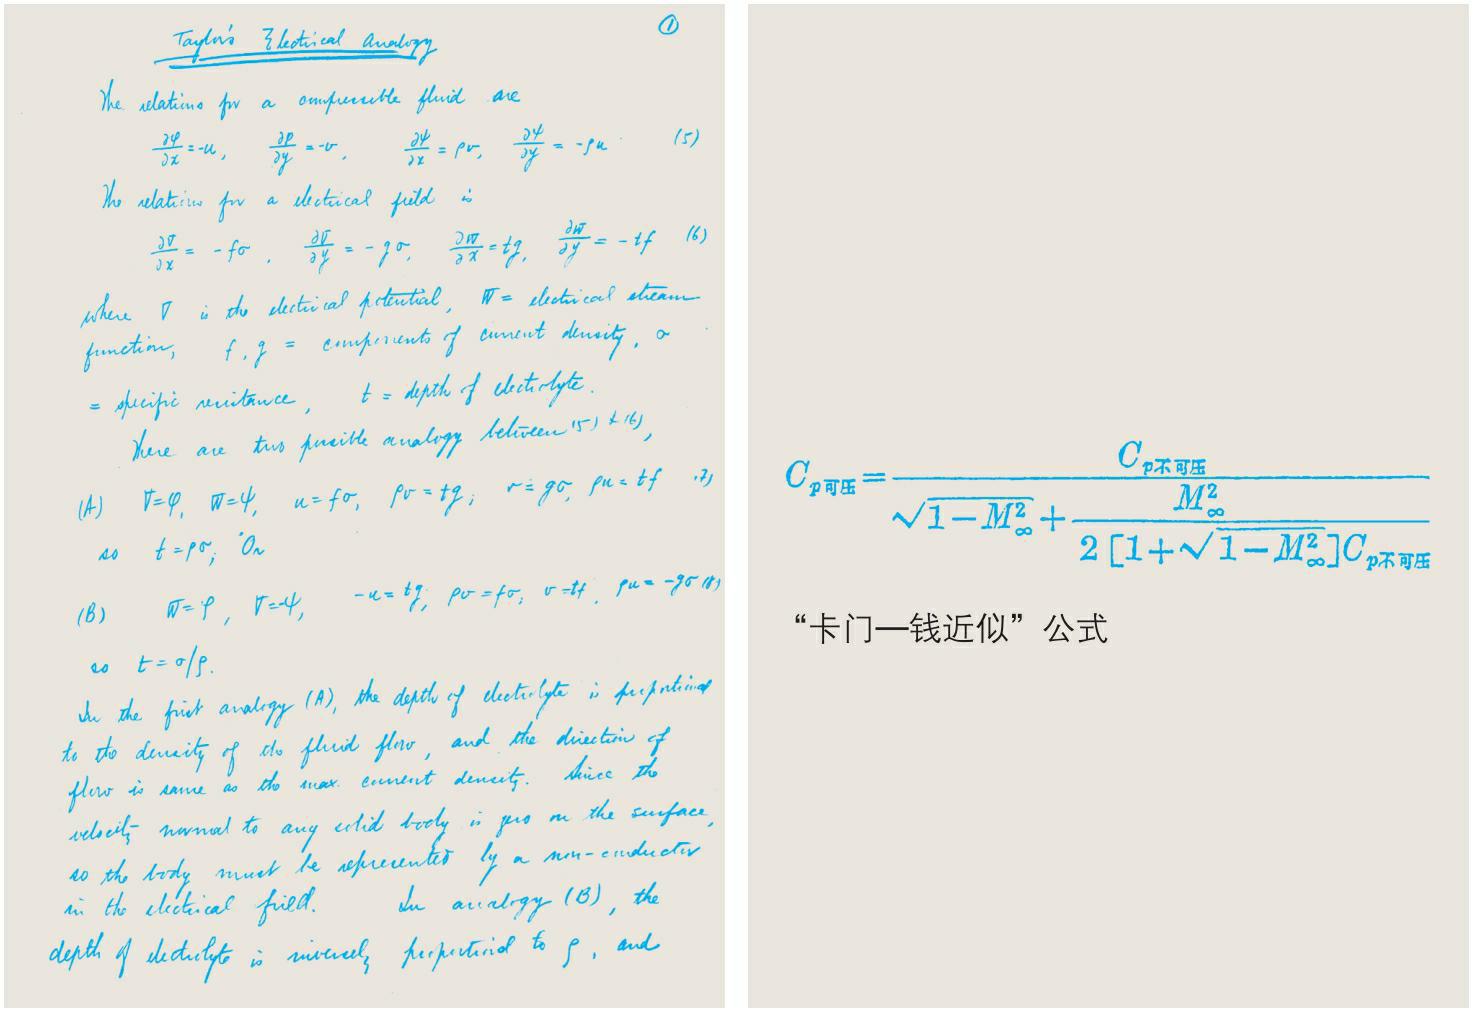 Taylor's Electrical Analogy
①
The relations for a compressible fluid are
∂φ/∂x = -u, ∂φ/∂y = -v, ∂ψ/∂x = ρv, ∂ψ/∂y = -ρu (5)
The relations for a electrical field is
∂V/∂x = -fσ, ∂V/∂y = -gσ, ∂W/∂x = tg, ∂W/∂y = -tf (6)
where V is the electrical potential, W = electrical stream
function, f, g = components of current density, σ
= specific resistance, t = depth of electrolyte.
There are two possible analogy between (5) & (6),
(A) V=φ, W=ψ, u=fσ, ρv=tg; v=gσ, ρu=tf (7)
so t=ρσ; Or
(B) W=φ, V=ψ, -u=tg, ρv=fσ; v=tf, ρu=-gσ (8)
so t=σ/ρ.
In the first analogy (A), the depth of electrolyte is proportional
to the density of the fluid flow, and the direction of
flow is same as the max. current density. Since the
velocity normal to any solid body is zero on the surface,
so the body must be represented by a non-conductor
in the electrical field. In analogy (B), the
depth of electrolyte is inversely proportional to ρ, and
C_p可压 = C_p不可压 / (√(1-M∞²) + M∞² / (2[1+√(1-M∞²)]C_p不可压))
“卡门—钱近似”公式